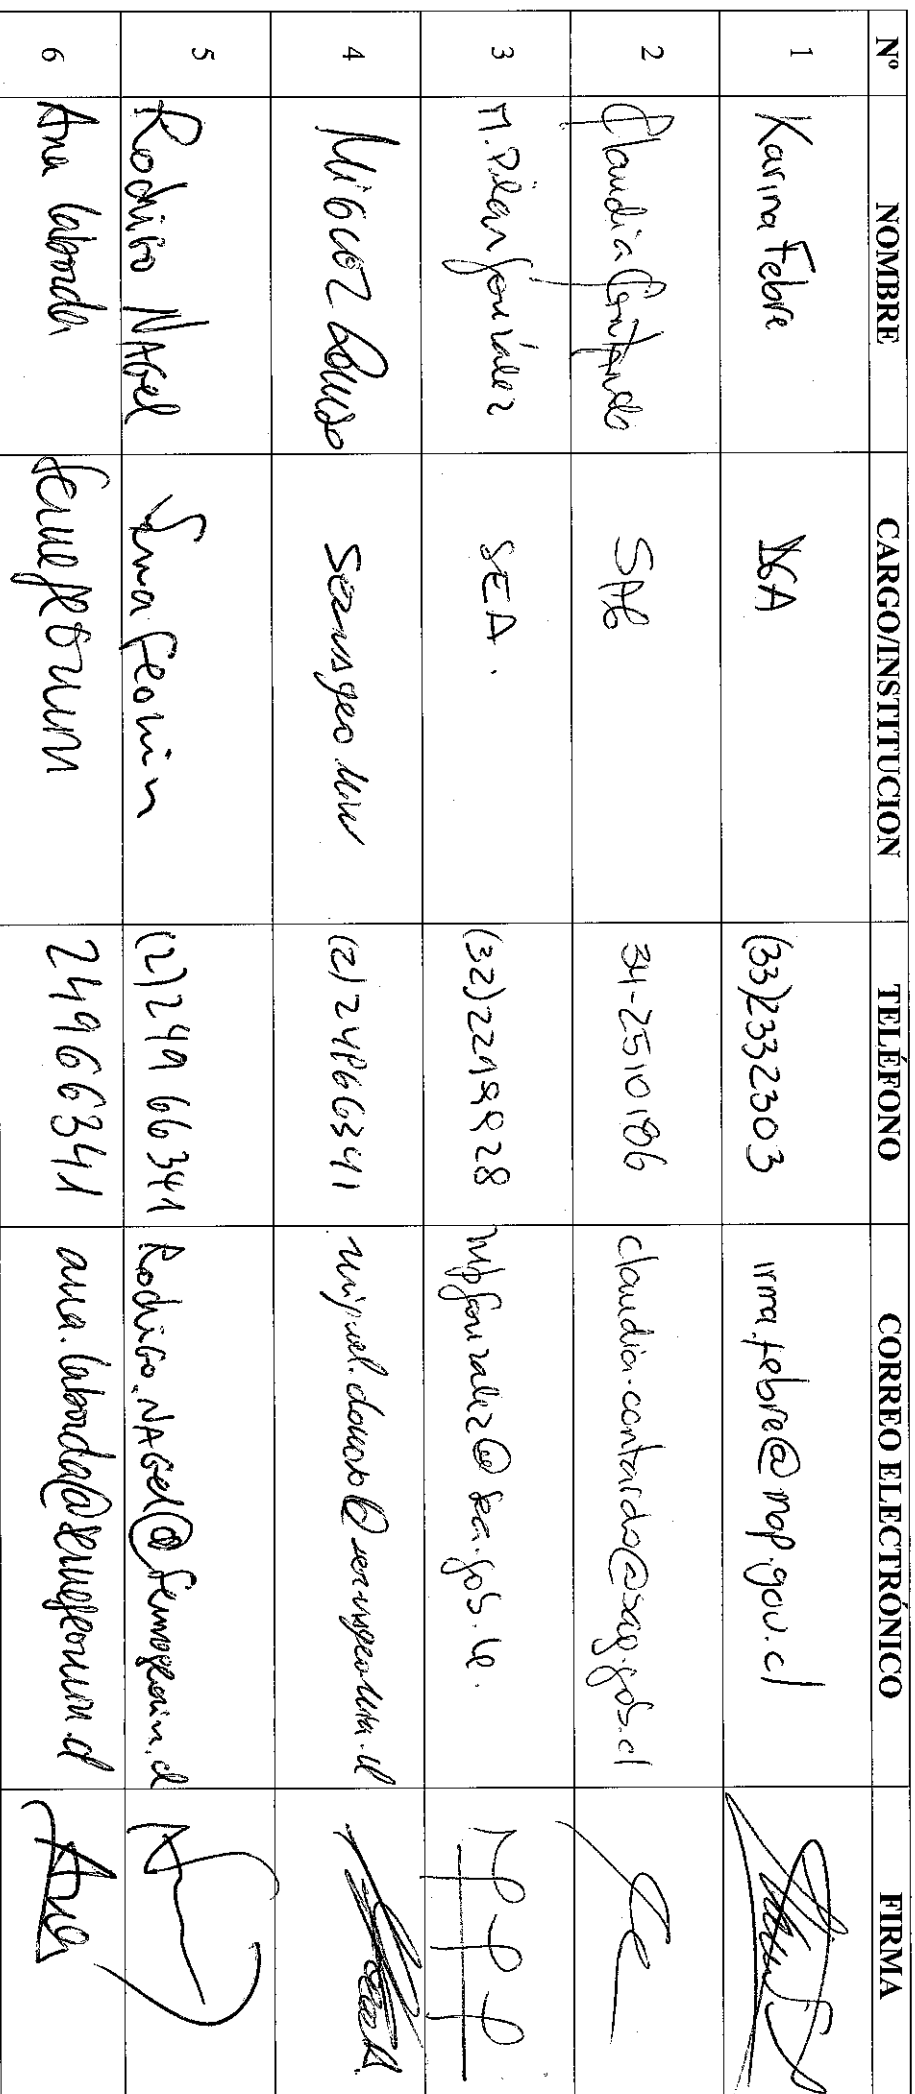 Nº NOMBRE CARGO/INSTITUCION TELÉFONO CORREO ELECTRÓNICO FIRMA
1 Karina Febre DGA (33)2332303 irma.febre@mop.gov.cl
2 Claudia Contardo SAG 34-2510186 claudia.contardo@sag.gob.cl
3 M. Pilar González SEA. (32)2219928 mpgonzalez@sea.gob.cl.
4 Miguel Sernageomin (2)24966341
5 Rodrigo NAGel Sernageomin (2)249 66 341 Rodrigo.NAGel@Sernageomin.cl
6 Ana Laborda Sernageomin 24966341 ana.laborda@sernageomin.cl Ana